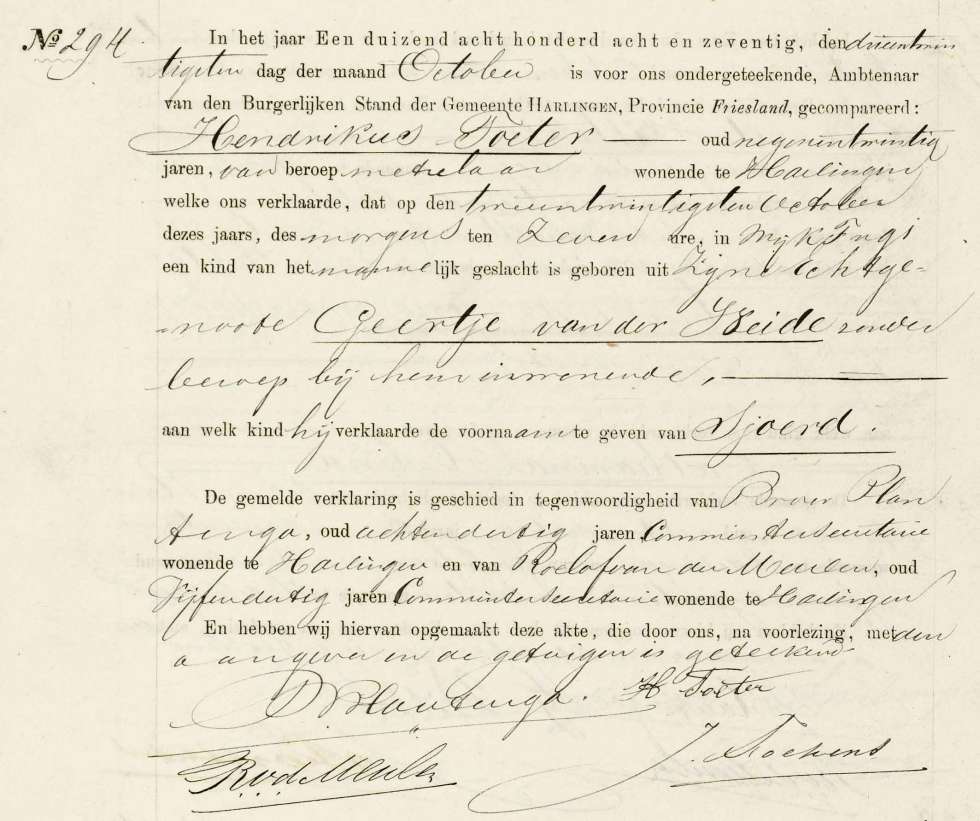 No 294.
In het jaar Een duizend acht honderd acht en zeventig, den drieentwin
tigsten dag der maand October is voor ons ondergeteekende, Ambtenaar
van den Burgerlijken Stand der Gemeente HARLINGEN, Provincie Friesland, gecompareerd:
Hendrikus Toeter oud negenentwintig
jaren, van beroep metselaar wonende te Harlingen
welke ons verklaarde, dat op den tweeentwintigsten October
dezes jaars, des morgens ten Zeven ure, in Wijk F
een kind van het mannelijk geslacht is geboren uit Zijne Echtge-
noote Geertje van der Heide zonder
beroep bij hem inwonende,
aan welk kind hij verklaarde de voornaam te geven van Sjoerd.
De gemelde verklaring is geschied in tegenwoordigheid van Broer Plan
tenga, oud achtendertig jaren, Commies ter Secretarie
wonende te Harlingen en van Roelof van der Meulen, oud
Vijfendertig jaren, Commies ter Secretarie wonende te Harlingen
En hebben wij hiervan opgemaakt deze akte, die door ons, na voorlezing, met den
aangever en de getuigen is geteekend
Plantenga. H Toeter
R. v. d. Meulen J.